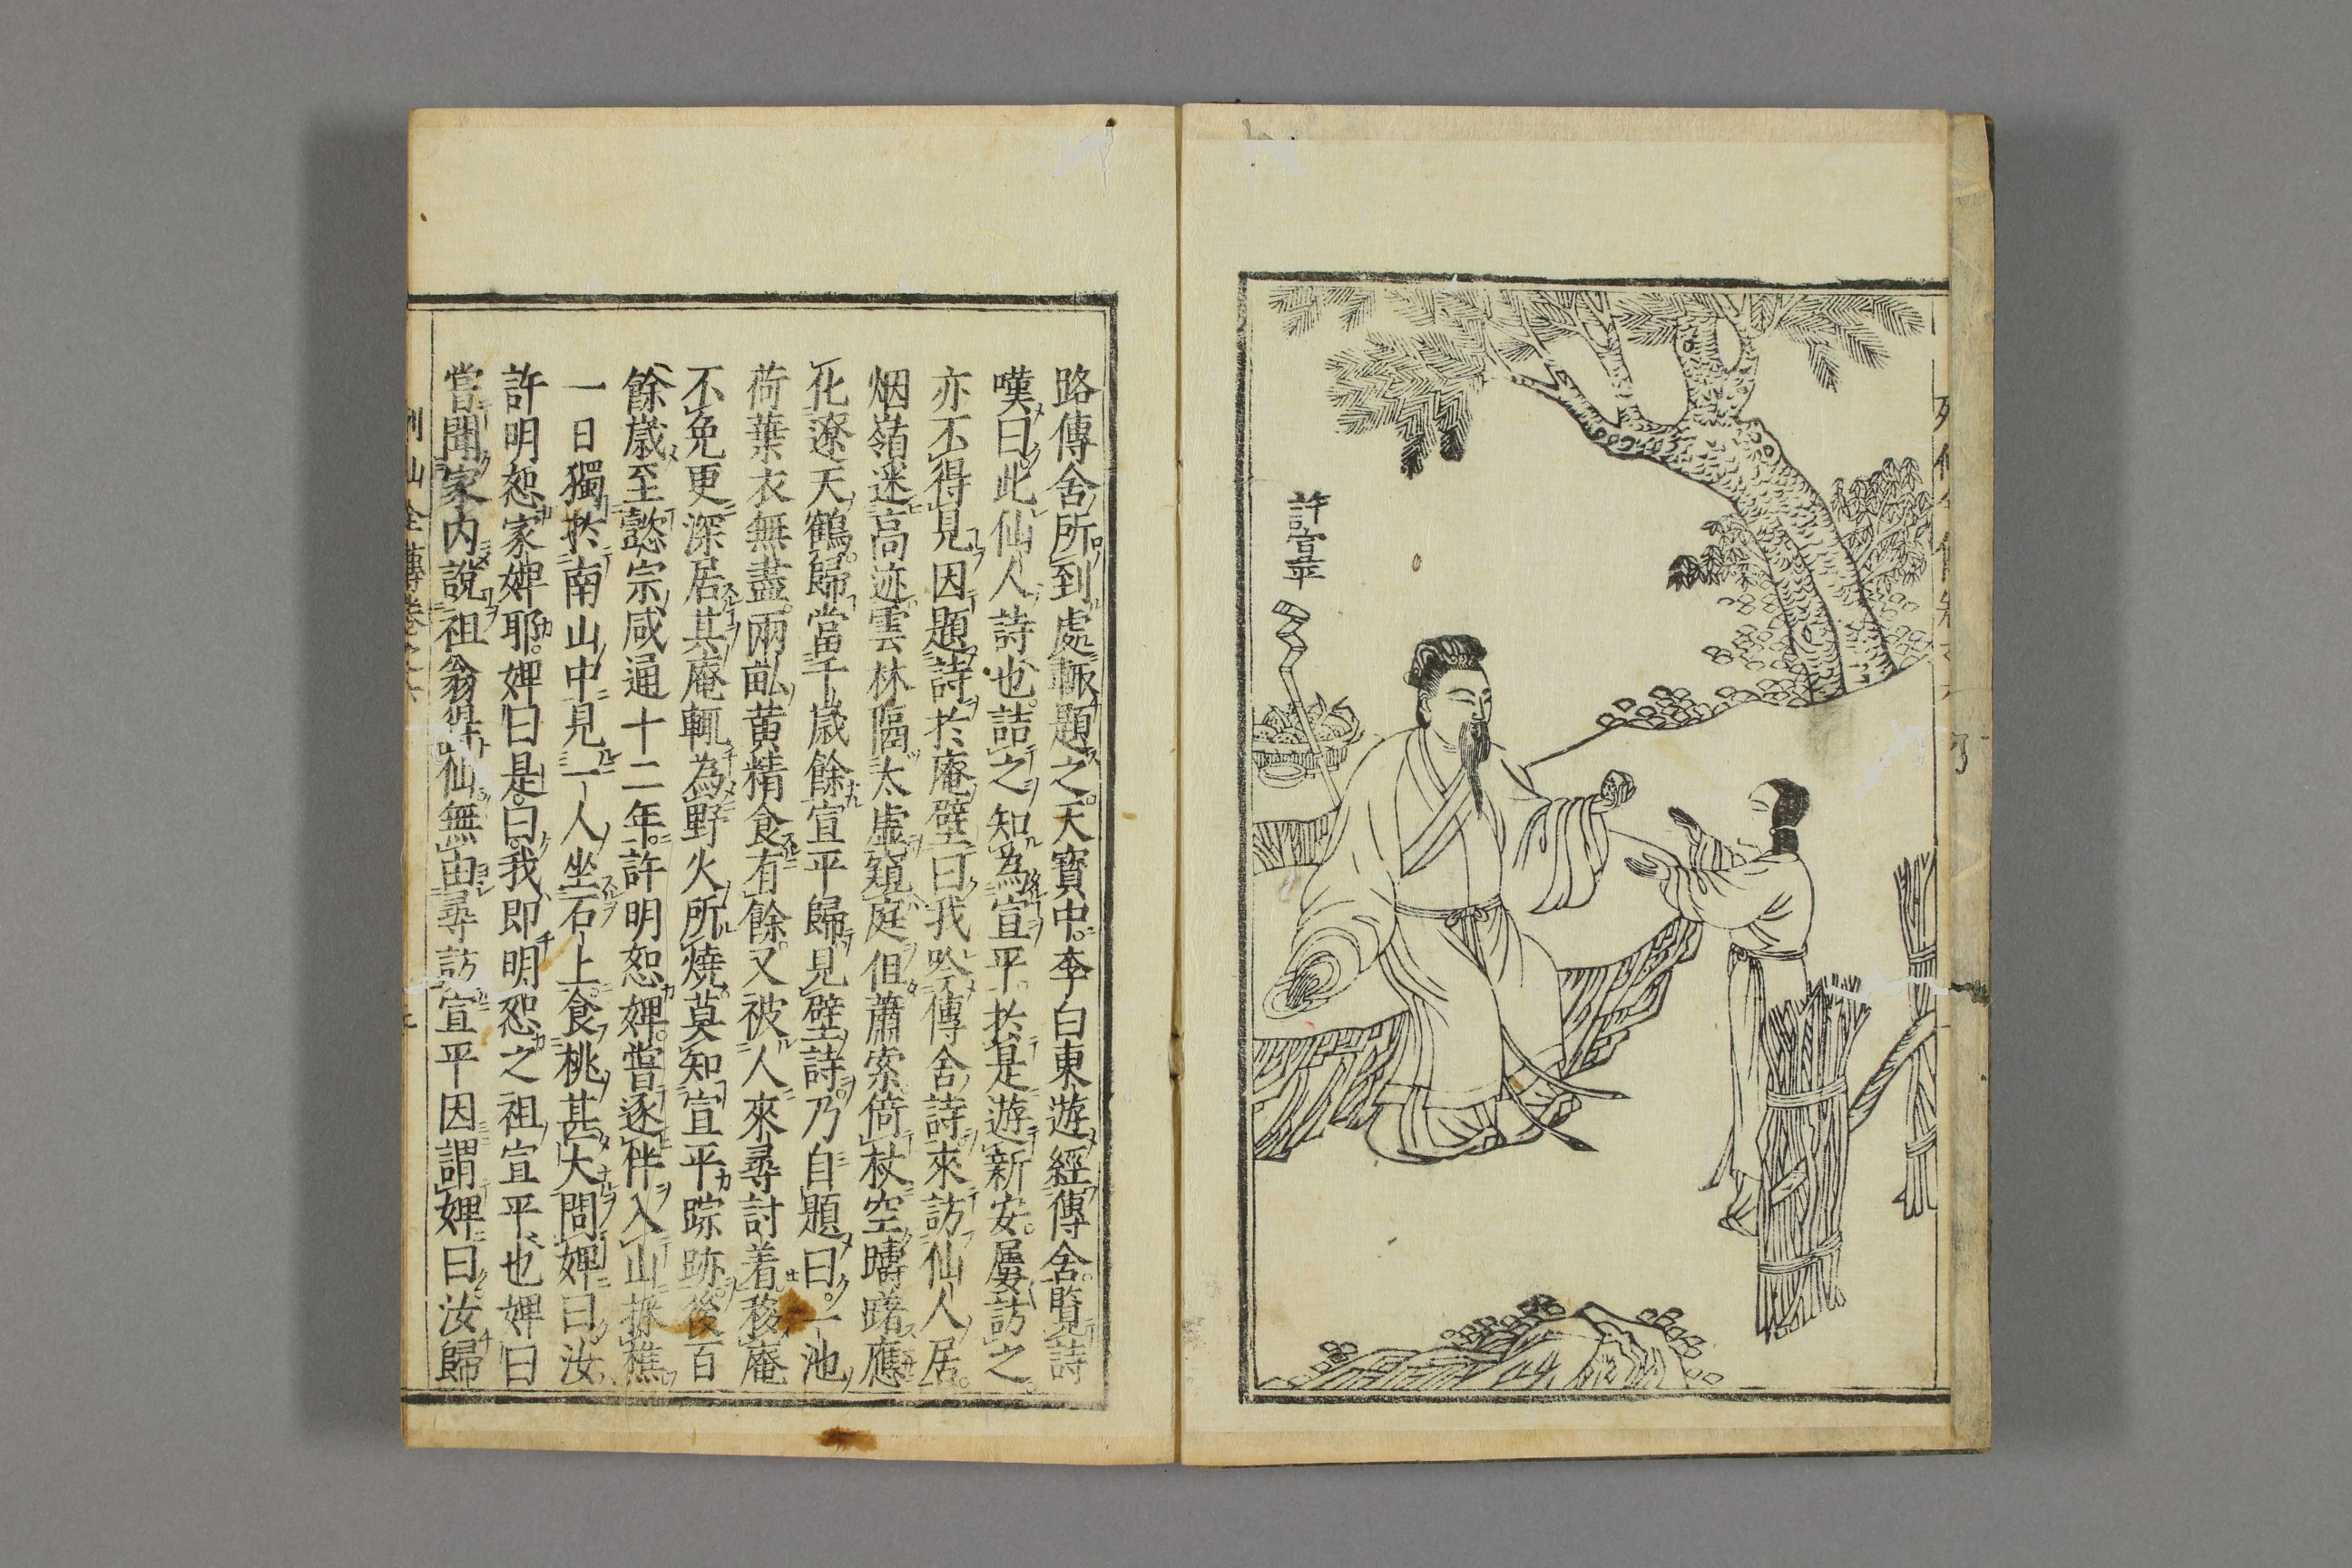 許宣平
路傳舍所到處輙題之天寶中李白東遊經傳舍覽詩
嘆曰此仙人詩也詰之知為宣平於是遊新安屢訪之
亦不得見因題詩於庵壁曰我吟傳舍詩來訪仙人居
烟嶺迷高迹雲林隔太虛窺庭但蕭索倚杖空躊躇應
化遼天鶴歸當千歲餘宣平歸見壁詩乃自題曰一池
荷葉衣無盡兩畝黃精食有餘又被人來尋討着移庵
不免更深居其庵輒為野火所燒莫知宣平踪跡後百
餘歲至懿宗咸通十二年許明恕婢嘗逐伴入山採樵
一日獨於南山中見一人坐石上食桃甚大問婢曰汝
許明恕家婢耶婢曰是曰我即明恕之祖宣平也婢曰
嘗聞家內說祖翁得仙無由尋訪宣平因謂婢曰汝歸
列仙全傳卷之六